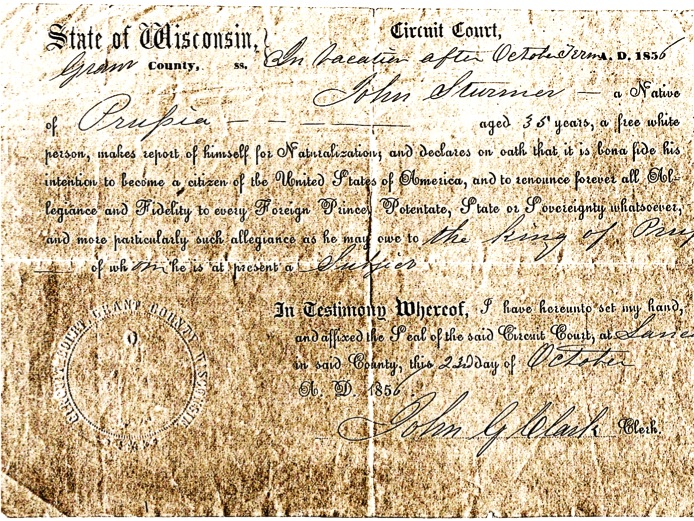 State of Wisconsin, } Circuit Court,
Grant County, ss. In Vacation after October Term A. D. 1856
John Sturmer — a Native
of Prussia — — — — — aged 35 years, a free white
person, makes report of himself for Naturalization, and declares on oath that it is bona fide his
intention to become a citizen of the United States of America, and to renounce forever all Al-
legiance and Fidelity to every Foreign Prince, Potentate, State or Sovereignty whatsoever,
and more particularly such allegiance as he may owe to the King of Prus
— of whom he is at present a Subject
In Testimony Whereof, I have hereunto set my hand,
and affixed the Seal of the said Circuit Court, at Lanc
in said County, this 22d day of October
A. D. 1856
John G Clark Clerk.
CIRCUIT COURT, GRANT COUNTY WISCONSIN